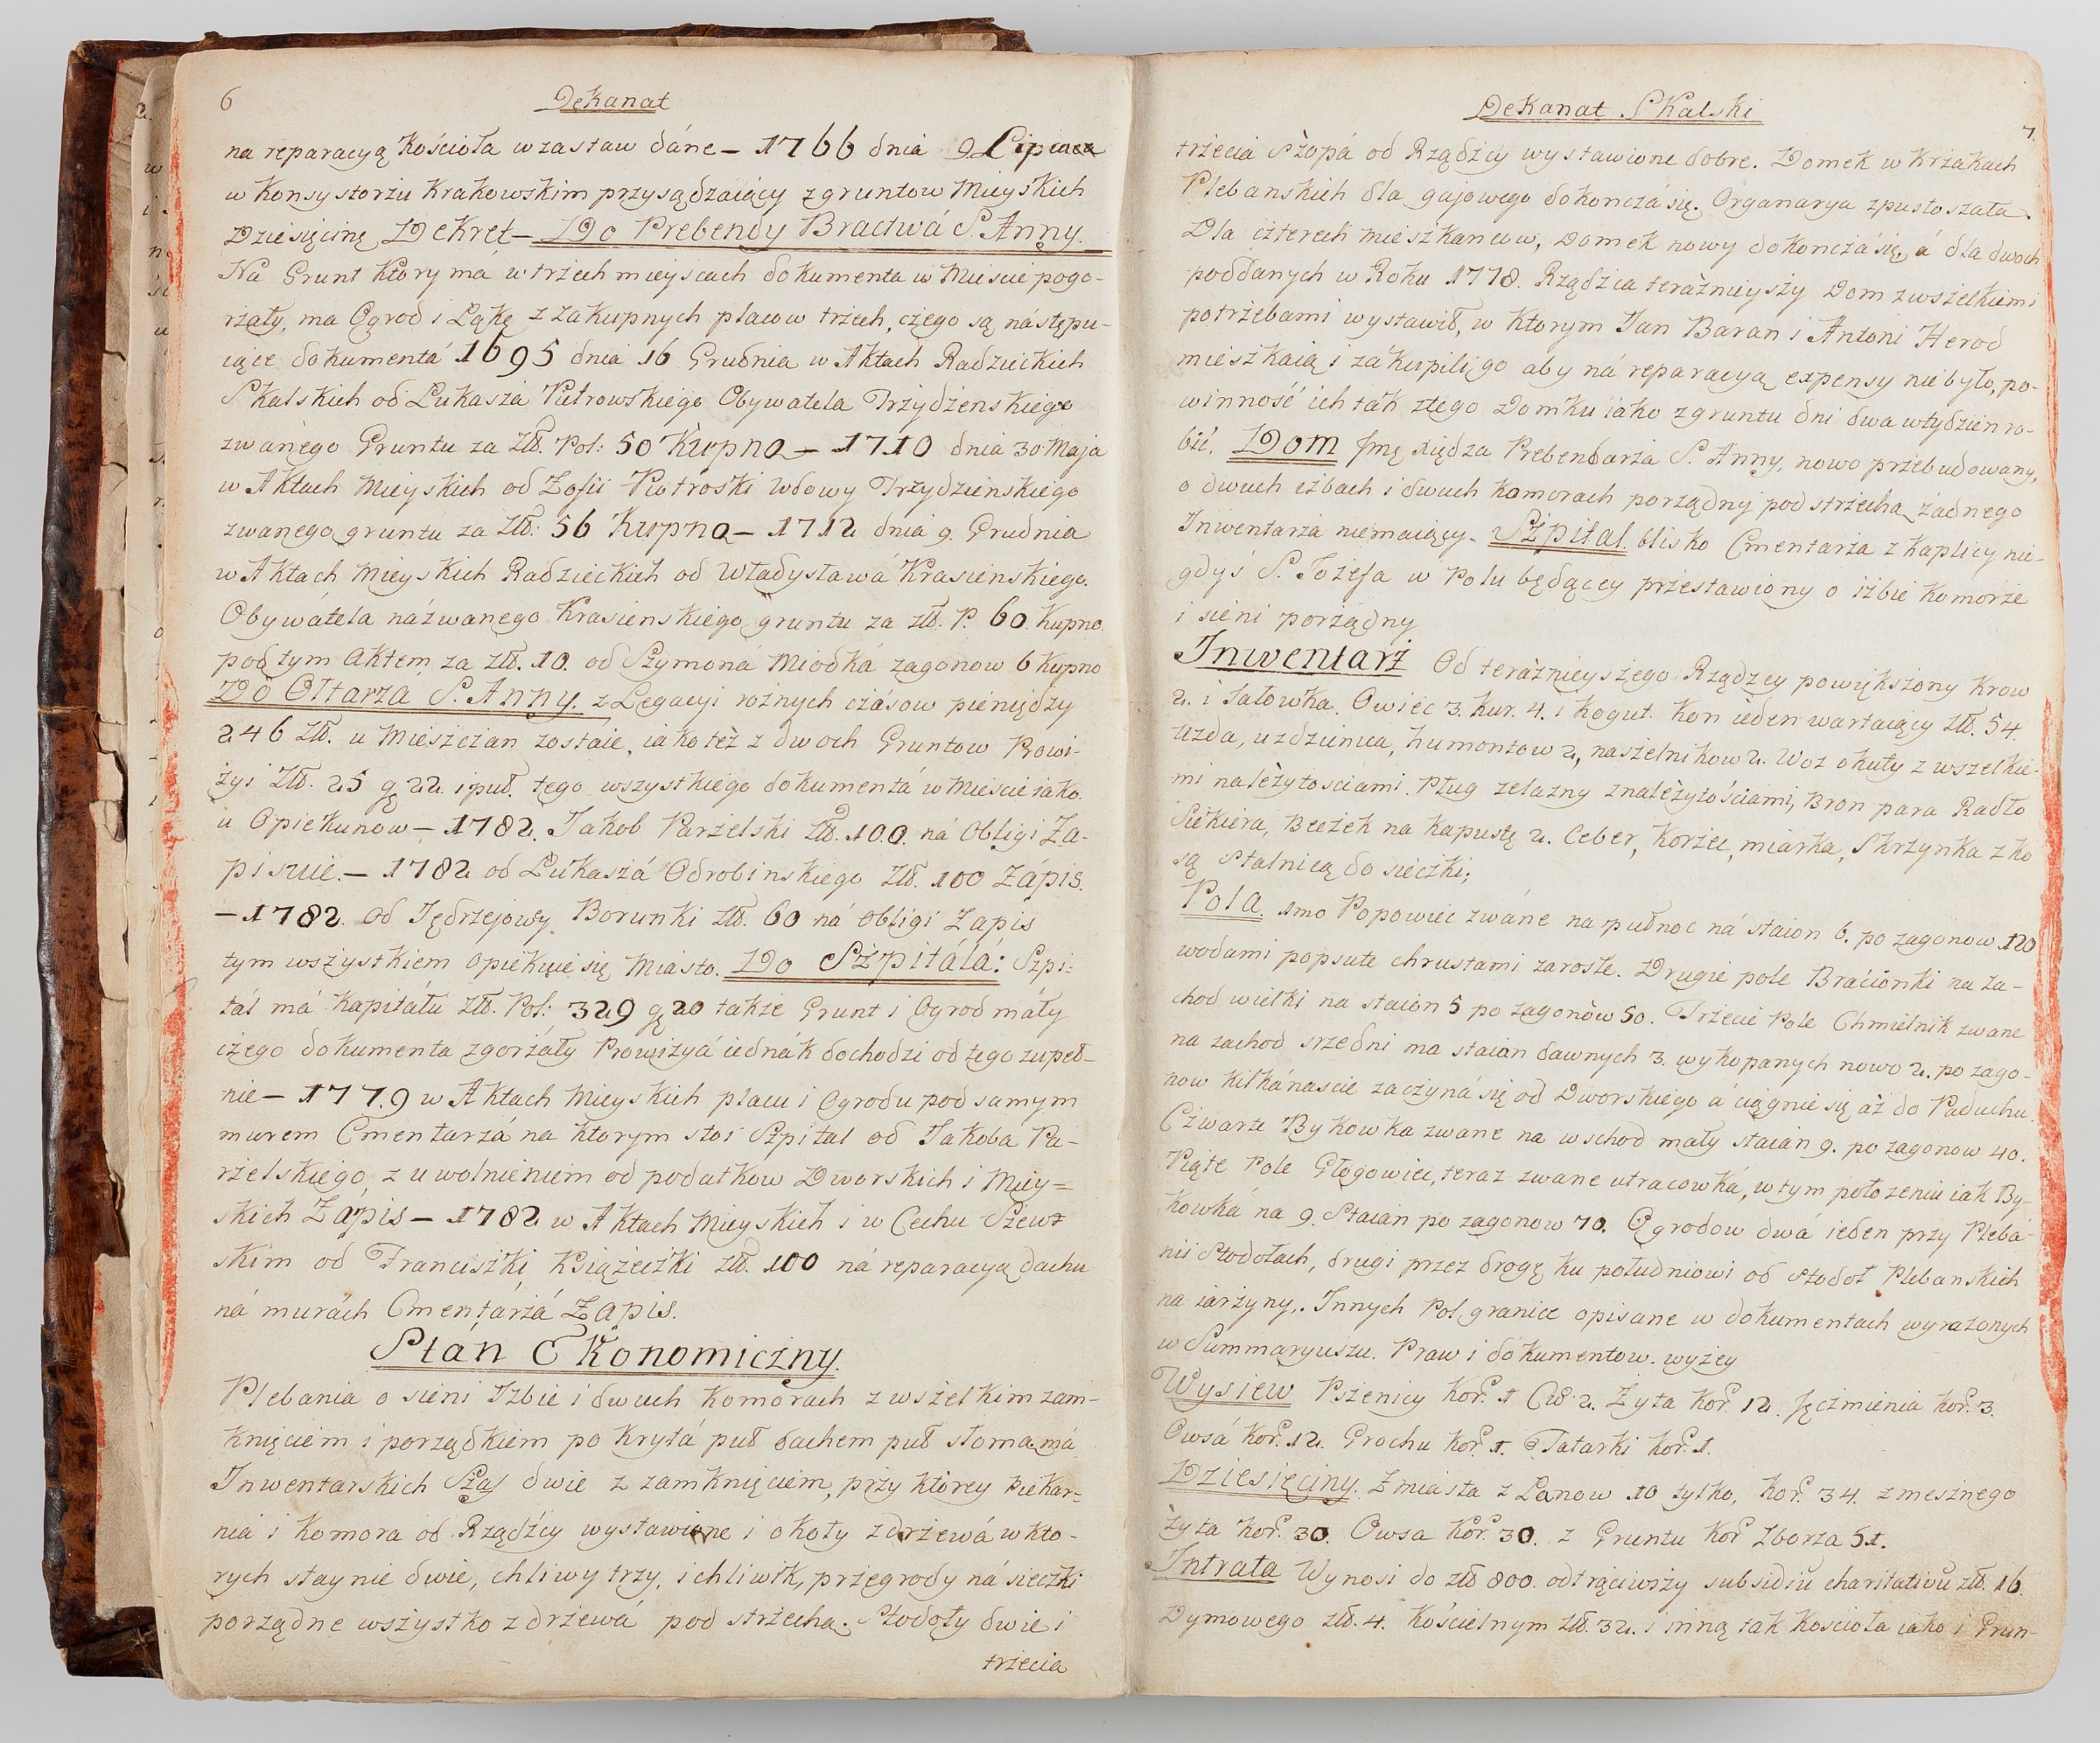 6
Dekanat
na reparacyą Kościoła w zastaw dáne – 1766 dnia 9 Lipiaca
w Konsystorżu Krakowskim przysądzaiący z gruntow Mieyskich
Dziesięcinę Dekret – Do Prebendy Bractwá S. Anny.
Na Grunt Ktory má w trżech mieyscach dokumenta w Miescie pogo-
rżały, ma Ogrod i Łąkę z zakupnych placow trżech, czego są nástępu-
iące dokumentá 1695 dnia 16 Grudnia w Aktach Radzieckich
Skalskich od Łukasża Pietrowskiego Obywatela Trżydżenskiego
zwanego Gruntu za Złł. Pol: 50 Kupno – 1710 dnia 30 Maja
w Aktach Mieyskich od Zofii Piotroski Wdowy Trżydzienskiego
zwanego gruntu za Złł: 56 Kupno – 1712 dnia 9. Grudnia
w Aktach Mieyskich Radzieckich od Władysławá Krasienskiego.
Obywátela názwanego Krasienskiego gruntu za złł. P. 60. Kupno.
pod tym Aktem za złł. 10. od Sżymoná Miodká zagonow 6 Kupno
Do Ołtarżá S. Anny. z Legacyi rożnych cżásow pieniędzy
246 złł. u Miesżcżan zostaie, iako też z dwoch Gruntow Prowi-
żyi Złł. 25 gę 22. i puł. tego wszystkiego dokumentá w Miescie iako
u Opiekunow – 1782. Jakob Parżelski złł. 100. ná Obligi Za-
pisuie. – 1782 od Łukaszá Odrobinskiego złł. 100 Zápis.
– 1782. od Jędrzejowy Borunki złł. 60 ná obligi Zapis
tym wszystkiem opiekuie się Miasto. Do Sżpitálá: Szpi=
tál má Kapitáłu złł. Pol: 329 gę 20 także Grunt i Ogrod máły
cżego dokumenta zgorżáły Prowiżyá iednák dochodzi od tego zupeł-
nie – 1779 w Aktach Mieyskich placu i Ogrodu pod samym
murem Cmentarżá na ktorym stoi Szpital od Jakoba Pa-
rżelskiego, z uwolnieniem od podatkow Dworskich i Miey=
skich Zápis – 1782 w Aktach Mieyskich i w Cechu Szew=
skim od Franciszki Książecżki złł. 100 ná reparacyą dachu
ná murách Cmentárżá Zapis.
Stán Ekonomicżny.
Plebania o sieni Izbie i dwuch Komorach z wsżelkim zam-
knięciem i porządkiem pokrytá puł dachem puł słomą má
Inwentarskich Sżaf dwie z zamknięciem, przy ktorey Piekar-
niá i Komora od Rządźcy wystawione i okoły z drżewá w kto-
rych staynie dwie, chliwy trzy, i chliwik, przegrody ná sieczki
porządne wszystko z drżewá pod strżechą. Stodoły dwie i
trżecia
Dekanat Skalski
7.
trżecia Sżopá od Rządźcy wystawione dobre. Domek w Krżakach
Plebanskich dla gajowego dokończá się. Organarya zpustoszała.
Dla cżterech mieszkancow, Domek nowy dokonczá się, á dla dwoch
poddanych w Roku 1778. Rządźca teráżnieyszy Dom z wszelkiemi
potrżebami wystawił, w ktorym Jan Baran i Antoni Herod
mieszkaią i zákupili go aby ná reparacyą expensy nie było, po-
winność ich ták z tego Domku iáko z gruntu dni dwa w tydzien ro-
bić. Dom Jmę Xiędza Prebendarża S. Anny, nowo przebudowany,
o dwuch izbach i dwuch Komorach porządny pod strżechą żadnego
Inwentarża niemaiący. Sżpital. blisko Cmentarża z kaplicy nie-
gdyś S. Jożefa w Polu będącey prżestawiony o iżbie Komorże
i sieni porżądny
Inwentarż Od teráżnieyszego Rządzcy powiększony Krow
2. i Jałowka. Owiec 3. Kur. 4. i Kogut. Kon ieden wartaiący złł. 54.
Uzda, uzdzienica, humontow 2, naszelnikow 2. Woz okuty z wszelkie-
mi należytosciami. Pług zelazny z należytościami, Bron para Radło
Siekiera, Becżek na kapustę 2. Ceber, Korżec, miarka, Skrżynka z ko
są Stalnicą do siecżki;
Pola. 1mo Popowiec zwáne na pułnoc ná staion 6. po zagonow 120
wodami popsute chrustami zarosłe. Drugie pole Braćionki na za-
chod wielki na staion 5 po zagonòw 50. Trżecie Pole Chmielnik zwane
na zachod srzedni ma staian dawnych 3. wykopanych nowo 2. po zago-
now kilkánascie zacżyná się od Dworskiego á ciągnie się aż do Paduchu.
Cżwarte Bykowka zwane na wschod mały staian 9. po zagonow 40.
Piąte Pole Głogowiec, teraz zwane utracowká, w tym położeniu iak By-
kowká na 9. Staian po zagonow 70. Ogrodow dwá ieden przy Plebá-
nii Stodołach, drugi przez drogę ku południowi od Stodoł Plebanskich
na iarżyny. Innych Pol granice opisane w dokumentach wyrażonych
w Summaryuszu. Praw i dokumentow. wyżey
Wysiew Pszenicy Kor. 1 Cw. 2. Żyta Kor. 12. Jęcżmienia Kor. 3.
Owsá Kor. 12. Grochu Kor. 1. Tatarki Kor. 1.
Dziesięciny. Z miasta z Łanow 10 tylko, Kor. 34. z mesznego
żyta Kor. 30. Owsa Kor. 30. z Gruntu Kor Zborza 51.
Intrata Wynosi do złł 800. odtrąciwszy subsidiu charitativu złł. 16.
Dymowego złł. 4. Kościelnym złł. 32. i inną tak Kosciola iako i Grun-